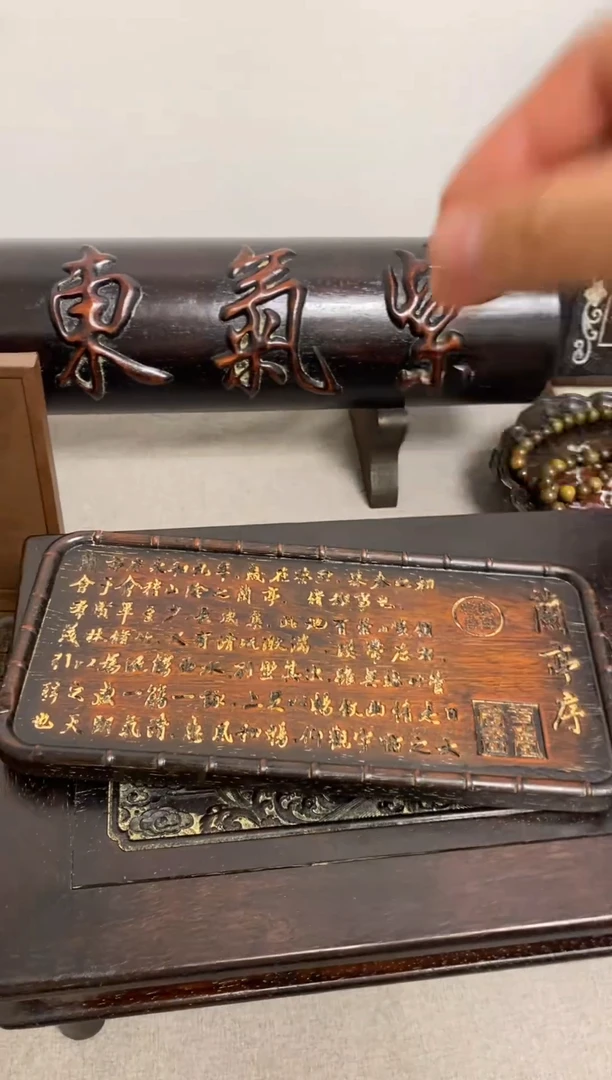 紫氣東
蘭亭序
永和九年歲在癸丑暮春之初
會于會稽山陰之蘭亭脩禊事也
群賢畢至少長咸集此地有崇山峻領
茂林脩竹又有清流激湍映帶左右
引以為流觴曲水列坐其次雖無絲竹管
弦之盛一觴一詠亦足以暢敘幽情是日
也天朗氣清惠風和暢仰觀宇宙之大